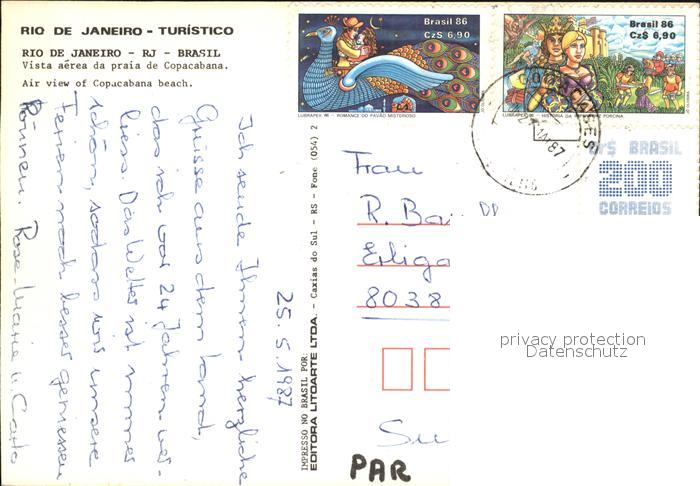 RIO DE JANEIRO - TURÍSTICO
RIO DE JANEIRO - RJ - BRASIL
Vista aérea da praia de Copacabana.
Air view of Copacabana beach.
25.5.1987
Ich sende Ihnen herzliche
Grüsse aus dem Land,
das ich vor 24 Jahren ver-
liess. Das Wetter ist immer
schön, sodass wir unsere
Ferien noch besser geniessen
können. Rose-Marie u. Carlo
IMPRESSO NO BRASIL POR:
EDITORA LITOARTE LTDA. - Caxias do Sul - RS - Fone (054) 2
Brasil 86
Cz$ 6,90
LUBRAPEX 86 - ROMANCE DO PAVÃO MISTERIOSO
Brasil 86
Cz$ 6,90
LUBRAPEX 86 - HISTÓRIA DA PORCINA
87
Cr$ BRASIL
200
CORREIOS
Frau
R. Ba
8038
Su
PAR
privacy protection
Datenschutz